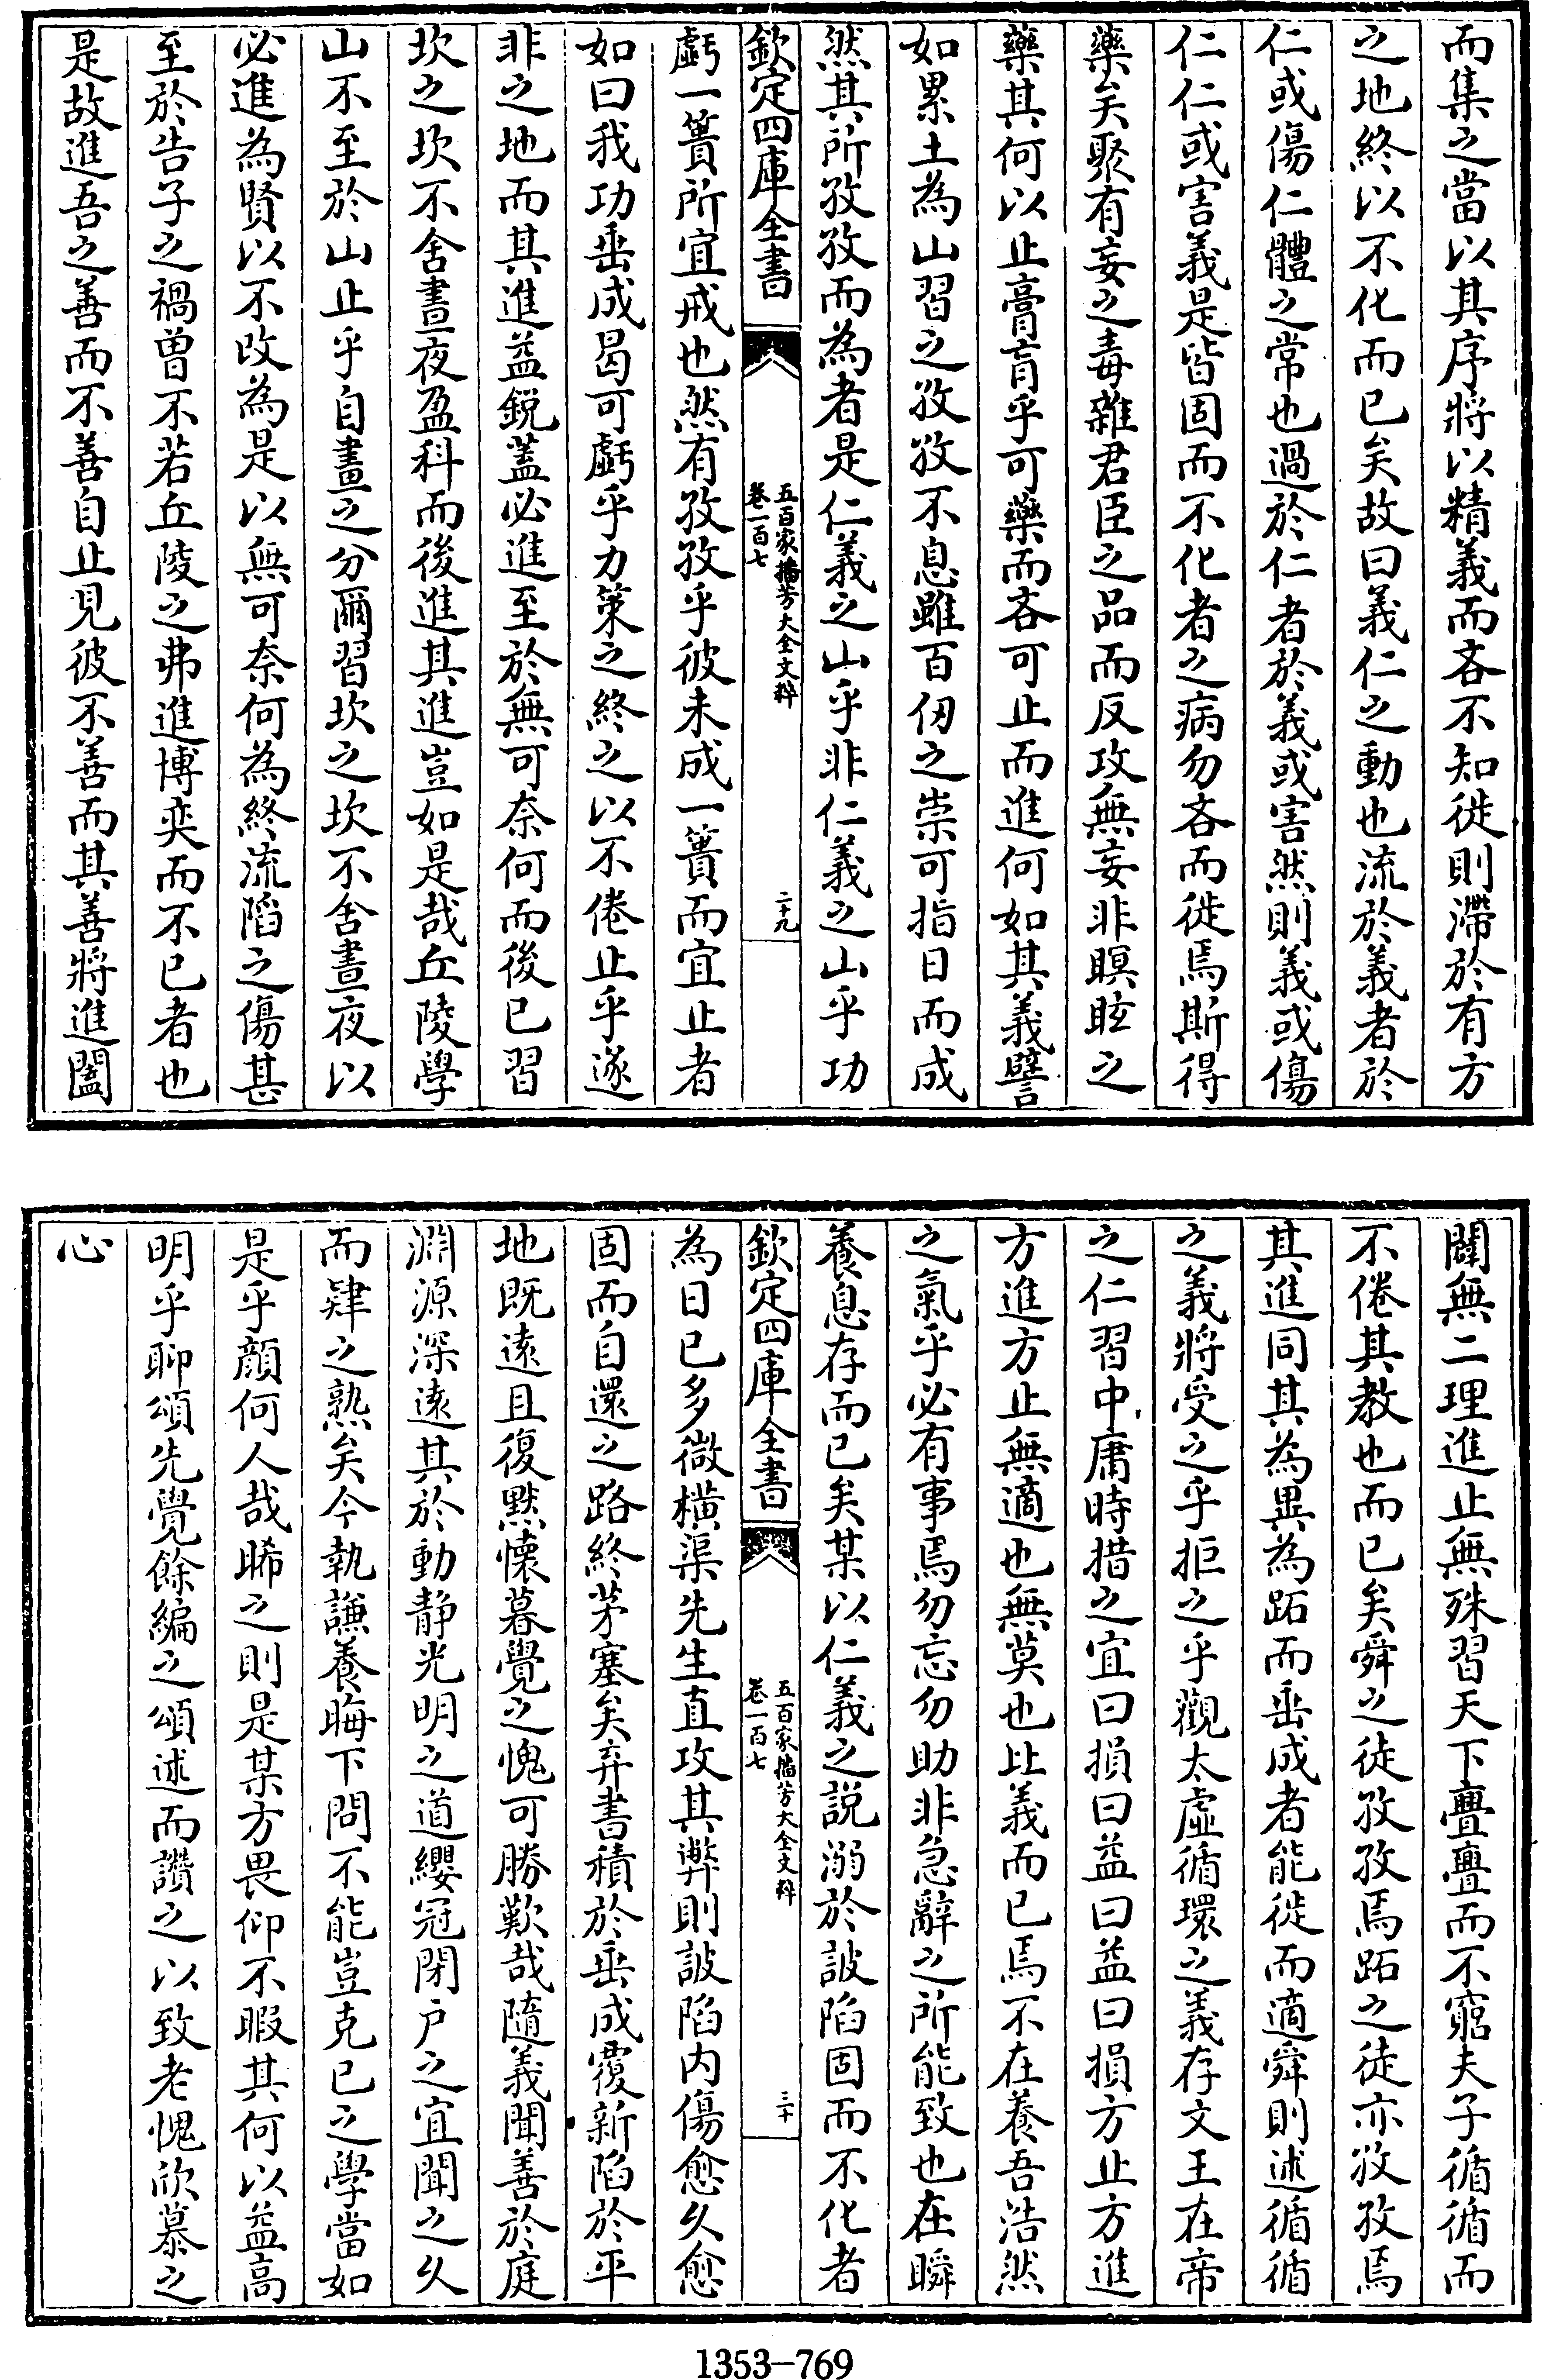 而集之當以其序將以精義而吝不知徙則滯於有方
之地終以不化而已矣故曰義仁之動也流於義者於
仁或傷仁體之常也過於仁者於義或害然則義或傷
仁仁或害義是皆固而不化者之病勿吝而徙焉斯得
藥矣聚有妄之毒雜君臣之品而反攻無妄非瞑眩之
藥其何以止膏肓乎可藥而吝可止而進何如其義譬
如累土為山習之孜孜不息雖百仞之崇可指日而成
然其所孜孜而為者是仁義之山乎非仁義之山乎功
欽定四庫全書
五百家播芳大全文粹
卷一百七
二十九
虧一簣所宜戒也然有孜孜乎彼未成一簣而宜止者
如曰我功垂成曷可虧乎力策之終之以不倦止乎遂
非之地而其進益銳蓋必進至於無可奈何而後已習
坎之坎不舍晝夜盈科而後進其進豈如是哉丘陵學
山不至於山止乎自畫之分爾習坎之坎不舍晝夜以
必進為賢以不改為是以無可奈何為終流陷之傷甚
至於告子之禍曾不若丘陵之弗進博奕而不已者也
是故進吾之善而不善自止見彼不善而其善將進闔
闢無二理進止無殊習天下亹亹而不窮夫子循循而
不倦其教也而已矣舜之徒孜孜焉跖之徒亦孜孜焉
其進同其為異為跖而垂成者能徙而適舜則述循循
之義將受之乎拒之乎觀太虛循環之義存文王在帝
之仁習中庸時措之宜曰損曰益曰益曰損方止方進
方進方止無適也無莫也比義而已焉不在養吾浩然
之氣乎必有事焉勿忘勿助非急辭之所能致也在瞬
養息存而已矣某以仁義之說溺於詖陷固而不化者
欽定四庫全書
五百家播芳大全文粹
卷一百七
三十
為日已多微橫渠先生直攻其弊則詖陷內傷愈久愈
固而自還之路終茅塞矣弃書積於垂成覆新陷於平
地既遠且復默懷暮覺之愧可勝歎哉隨義聞善於庭
淵源深遠其於動靜光明之道纓冠閉户之宜聞之久
而肄之熟矣今執謙養晦下問不能豈克已之學當如
是乎顏何人哉晞之則是某方畏仰不暇其何以益高
明乎聊頌先覺餘編之頌述而讚之以致老愧欣慕之
心
1353-769